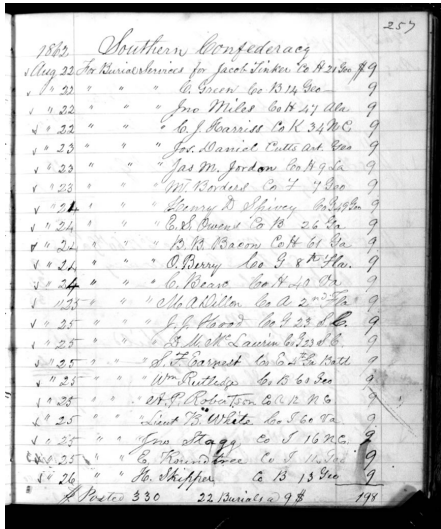 257
1862 Southern Confederacy
Aug 22 For Burial Services for Jacob Tinker Co H 21 Geo $ 9
" 22 " " " C. Green Co B 14 Geo 9
" 22 " " " Jno Miles Co H 47 Ala 9
" 22 " " " C. J. Harriss Co K 34 N C 9
" 23 " " " Jos. Daniel Cutts Art. Geo 9
" 23 " " " Jas M. Jordon Co H 9 La 9
" 23 " " " Borders Co F 7 Geo 9
" 24 " " " Henry D Co G 49 Geo 9
" 24 " " " E. S. Owens Co B 26 Ga 9
" 24 " " " B. B. Bacon Co H 61 Ga 9
" 24 " " " O. Berry Co G 8th Fla. 9
" 24 " " " C. Co H 40 9
" 25 " " " M. A Dillon Co A 2nd 9
" 25 " " " J. J. Hood Co 23 S. C. 9
" 25 " " " Laurin Co I 23 S. C. 9
" 25 " " " S. F. Earnest Co E Batl 9
" 25 " " " Wm Co B 61 Geo 9
" 25 " " " H. P. Robertson Co 12 N C 9
" 25 " " " Lieut B. White Co I 60 Va 9
" 25 " " " Jno Stagg Co I 16 N C. 9
" 25 " " " E. Roundtree Co I Geo 9
" 26 " " " H. Skipper Co B 13 Geo 9
Posted 330 22 Burials @ 9$ 198